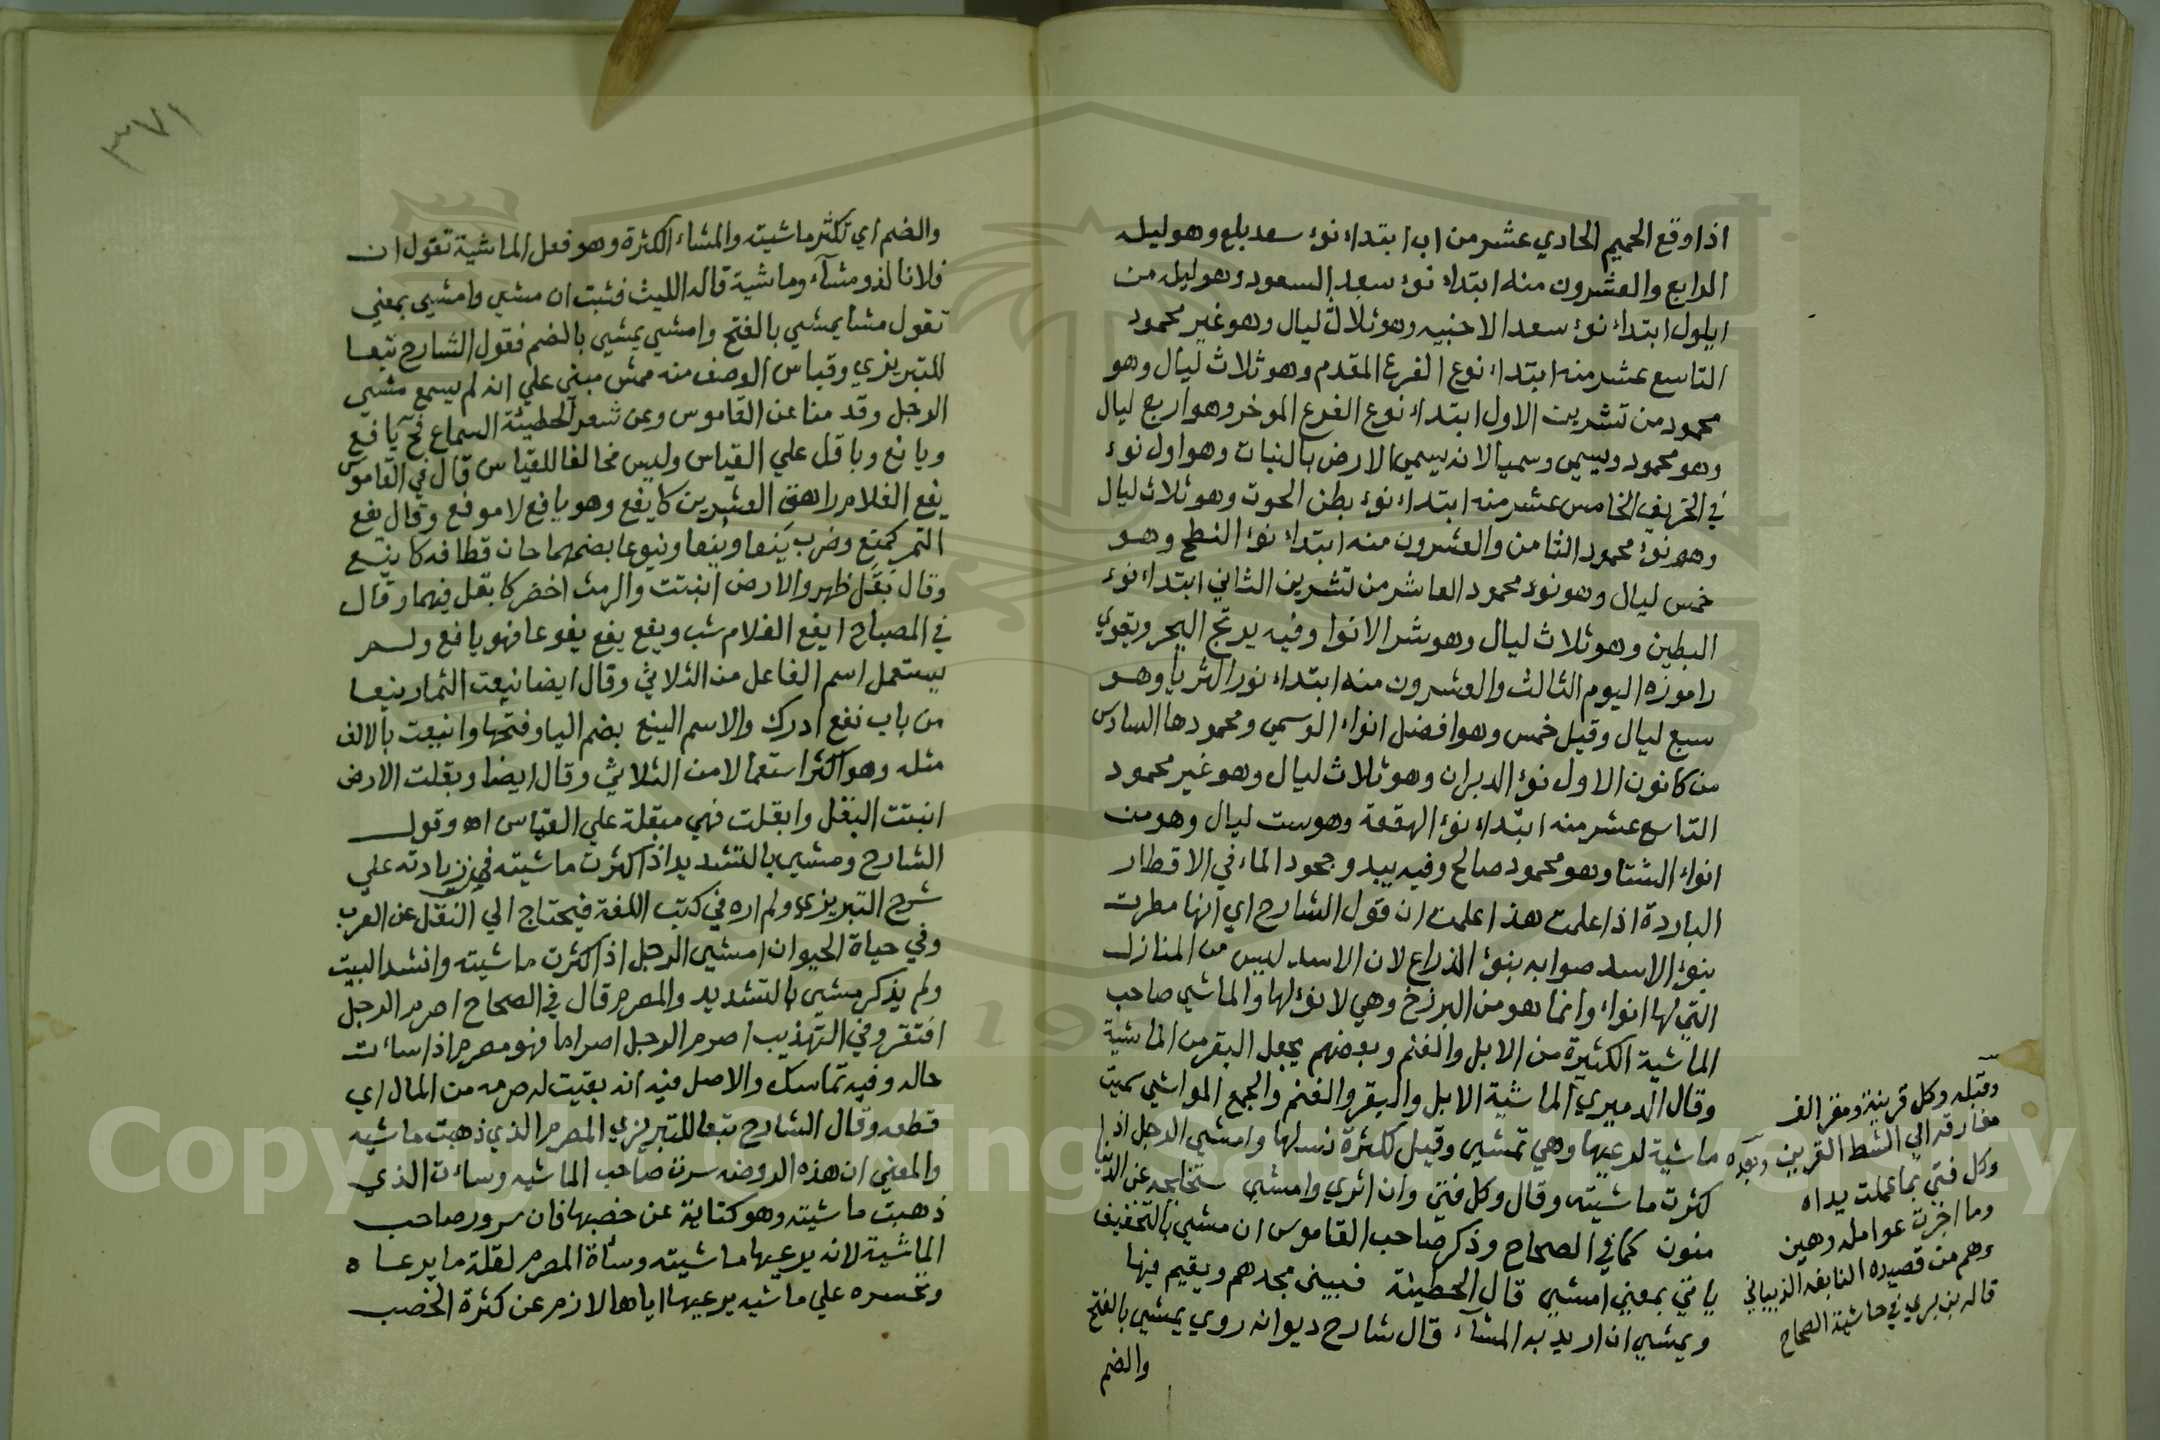 اذا وقع الحميم الحادي عشر من اب ابتداء نوء سعد بلع وهو ليله
الرابع والعشرون منه ابتداء نوء سعد السعود وهو ليله من
ايلول ابتداء نوء سعد الاخبيه وهو ثلاث ليال وهو غير محمود
التاسع عشر منه ابتداء نوع الفرع المقدم وهو ثلاث ليال وهو
محمود من تشرين الاول ابتداء نوع الفرع الموخر وهو اربع ليال
وهو محمود ويسمى وسميا لانه يسمى الارض بالنبات وهو اول نوء
في الخريف الخامس عشر منه ابتداء نوء بطن الحوت وهو ثلاث ليال
وهو نوء محمود الثامن والعشرون منه ابتداء نوء النطح وهو
خمس ليال وهو نوء محمود العاشر من تشرين الثاني ابتداء نوء
البطين وهو ثلاث ليال وهو شر الانوا وفيه يرتج البحر ويقوي
راموزه اليوم الثالث والعشرون منه ابتداء نور الثريا وهو
سبع ليال وقيل خمس وهو افضل انواء الوسمي ومحمودها السادس
من كانون الاول نوء الدبران وهو ثلاث ليال وهو غير محمود
التاسع عشر منه ابتداء نوء الهقعة وهو ست ليال وهو من
انواء الشتا وهو محمود صالح وفيه يبدو جمود الماء في الاقطار
الباردة اذا علمت هذا علمت ان قول الشارح اي انها مطرت
بنوء الاسد صوابه بنوء الذراع لان الاسد ليس من المنازل
التي لها انواء وانما هو من البرزخ وهي لا نوء لها والماشي صاحب
الماشية الكثيرة من الابل والغنم وبعضهم يجعل البقر من الماشية
وقال الدميري الماشية الابل والبقر والغنم والجمع المواشي سميت
ماشية لرعيها وهي تمشي وقيل لكثرة نسلها وامشي الرجل اذا
كثرت ماشيته وقال وكل فتى وان اثرى وامشي ستخلجه عن الدنيا
منون كما في الصحاح وذكر صاحب القاموس ان مشي بالتخفيف
ياتي بمعنى امشي قال الحطيئة فيبني مجدهم ويقيم فيها
ويمشي ان اريد به المشآء قال شارح ديوانه روي يمشي بالفتح
والضم
وقبله وكل قرينة ومقر الف
مفارقه الي الشط القرين وبعده
وكل فتى بما عملت يداه
وما اجزت عوامله رهين
وهم من قصيده النابغه الذبياني
قاله بن بري في حاشية الصحاح
٣٧١
والضم اي تكثر ماشيته والمشاء الكثرة وهو فعل الماشية تقول ان
فلانا لذو مشآء وماشية قاله الليث فثبت ان مشي وامشي بمعني
تقول مشا يمشي بالفتح وامشي يمشي بالضم فقول الشارح تبعا
للتبريزي وقياس الوصف منه ممش مبني علي انه لم يسمع مشى
الرجل وقد منا عن القاموس وعن شعر الحطيئة السماع فجآ يافع
ويانع وباقل علي القياس وليس مخالفا للقياس قال في القاموس
يفع الغلام راهق العشرين كايفع وهو يافع لا موفع وقال يفع
التمر كمنع وضرب ينعا وينعا وينوعا بضمهما حان قطافه كاينع
وقال بقل ظهر والارض انبتت والرمث اخضر كابقل فيهما وقال
في المصباح ايفع الغلام شب ويفع يفع يفوعا فهو يافع ولم
يستعمل اسم الفاعل من الثلاثي وقال ايضا نيعت الثمار ينعا
من باب نفع ادرك والاسم الينع بضم اليا وفتحها وانيعت بالالف
مثله وهو اكثر استعمالا من الثلاثي وقال ايضا وبقلت الارض
انبتت البقل وابقلت فهي مبقلة علي القياس اه وقول
الشارح ومشي بالتشديد اذا كثرت ماشيته في زيادته علي
شرح التبريزي ولم اره في كتب اللغة فيحتاج الي النقل عن العرب
وفي حياة الحيوان امشي الرجل اذا كثرت ماشيته وانشد البيت
ولم يذكر مشي بالتشديد والمصرم قال في الصحاح اصرم الرجل
افتقر وفي التهذيب اصرم الرجل اصراما فهو مصرم اذا سائت
حاله وفيه تماسك والاصل فيه انه بقيت له صرمه من المال اي
قطعه وقال الشارح تبعا للتبريزي المصرم الذي ذهبت ماشيه
والمعني ان هذه الروضه سرت صاحب الماشيه وسائت الذي
ذهبت ماشيته وهو كناية عن خصبها فان سرور صاحب
الماشية لانه يرعيها ماشيته وسأة المصرم لقلة ما يرعاه
وتحسره علي ماشيه يرعيها اياها لازم عن كثرة الخصب
Copyright © King Saud University
19